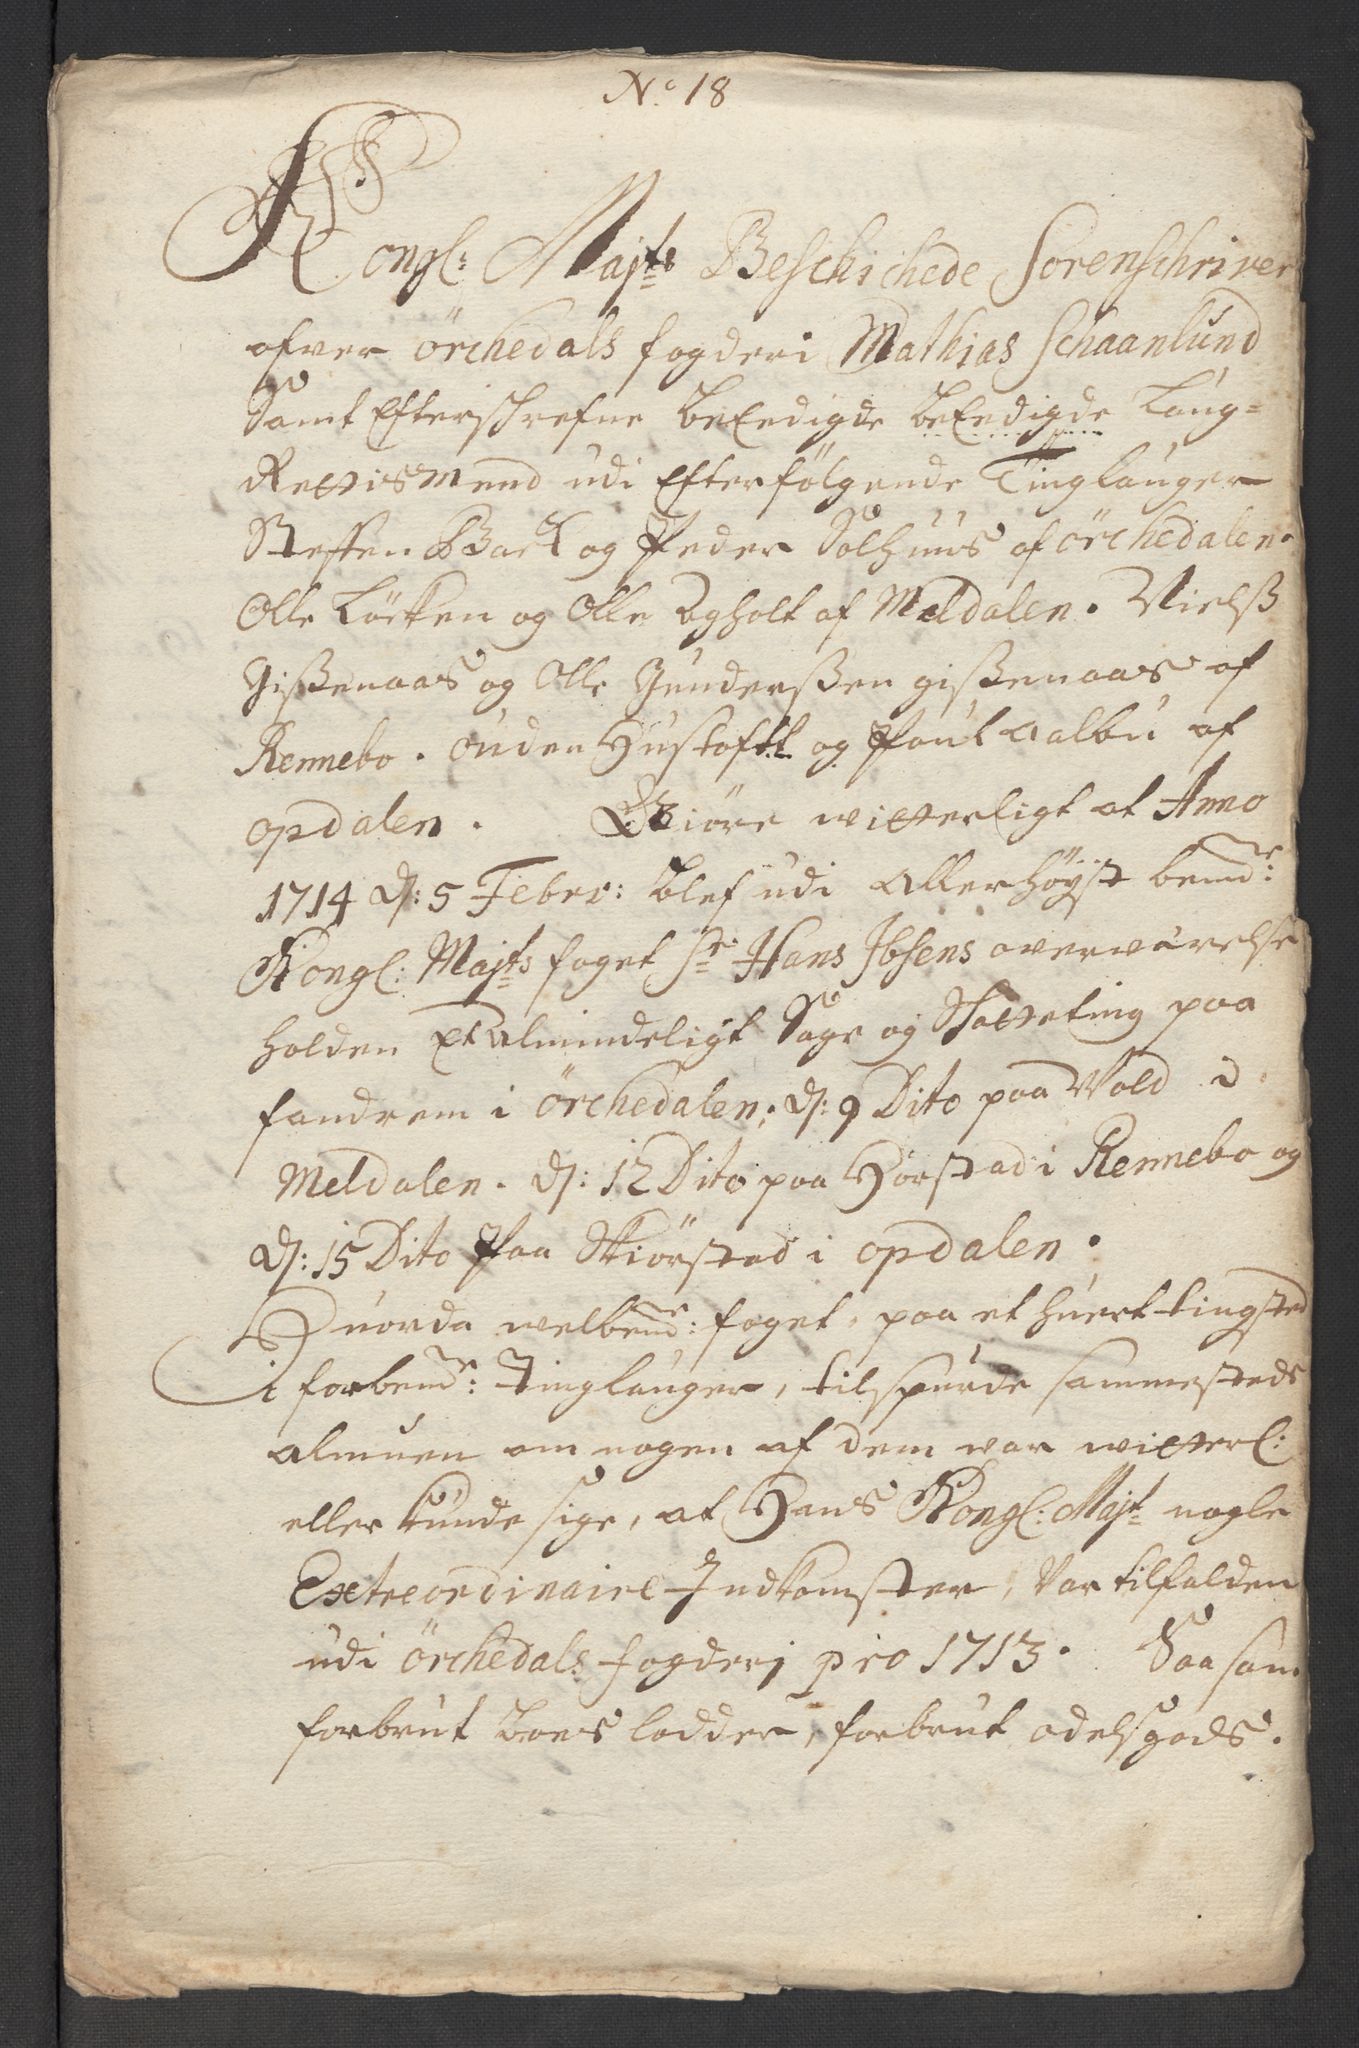 No 18
Kongl: Majts Beschichede Sorenschriver
ofver örchedals fogderi Mathias Schaanlund
Samt Efterschrefne beEedigde beEedigde Laug-
Rettismend udi Efterfölgende Tinglauger
Steffen Back og Peder Solhuus af örchedalen.
Olle Löcken og Olle Agholt af Meldalen. Nielß
Gißenaas og Olle Gunderßen gißenaas af
Rennebo. ouden Hustoftt og Poul aalbu af
opdalen. Giöre witterligt at Anno
1714 d: 5 Febrr: blef udi Allerhöyst bemte:
Kongl: Majts foget Sr Hans Ibsens overwærelse
holden Et Almindeligt Sage og Skatteting paa
fandrem i örchedalen; d: 9 Dito paa Vold i
Meldalen. d: 12 Dito paa Hörstad i Rennebo og
d: 15 Dito Paa Skiörsted i opdalen.
Huorda welbemte: foget, paa et huert tingsted
i forbemte: Tinglauger, tilspurde sammesteds
almuen om nogen af dem var witterl:
eller kunde sige, at Hans Kongl: Majt nogle
Extreordinaire Indkomster, var tilfalden
udi örchedals fogderj pro 1713. Saasom
forbrut boes lodder, forbrut odelsgods.